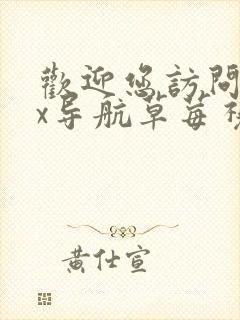 歡迎您訪問
x导航草莓视
黄仕宣